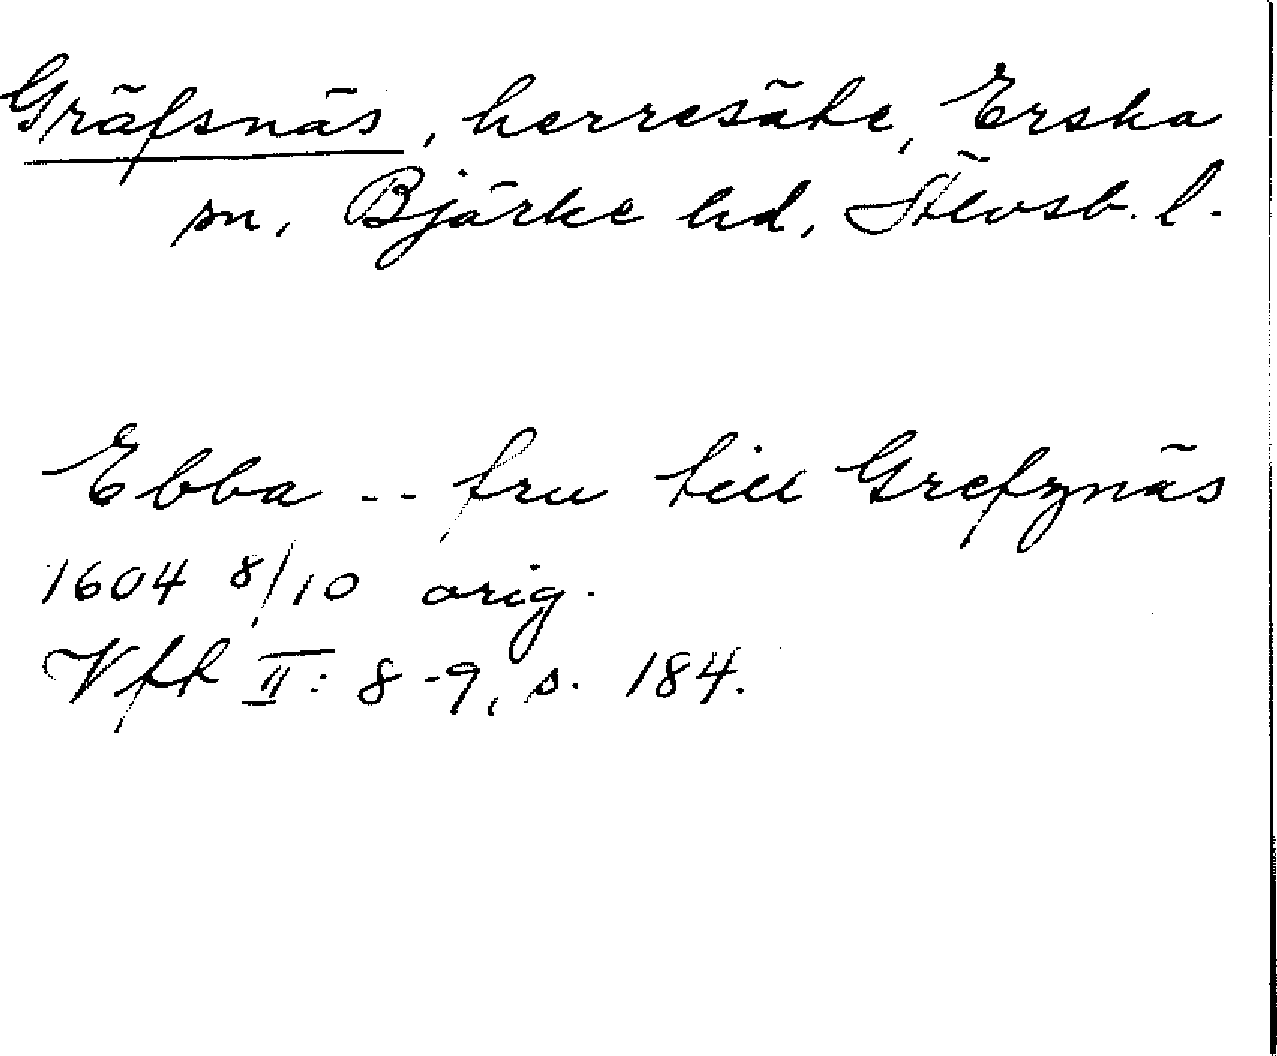 Gräfsnäs, herresäte, Erska
sn, Bjärke hd, Älvsb. l.
Ebba -- fru till Grefznäs
1604 8/10 orig.
Vfk II: 8-9, s. 184.